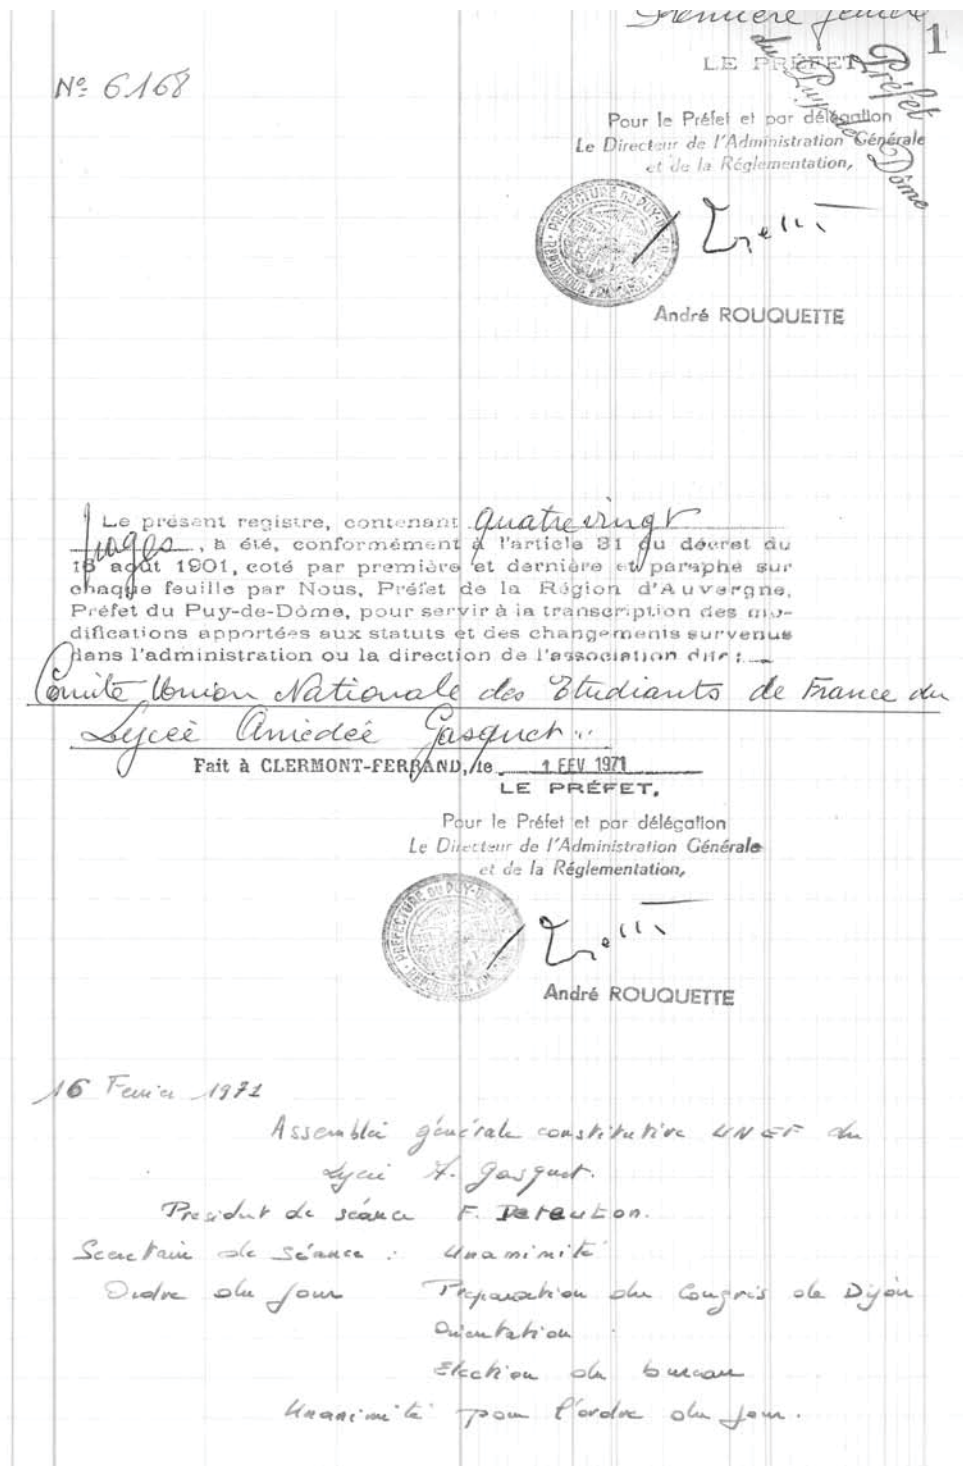 Première feuille
1
LE PRÉFET
Préfet
du Puy de Dôme
Nº 6168
Pour le Préfet et par délégation
Le Directeur de l'Administration Générale
et de la Réglementation,
PRÉFECTURE DU PUY-DE-DÔME
RÉPUBLIQUE FRANÇAISE
André ROUQUETTE
Le présent registre, contenant quatre vingt
pages, a été, conformément à l'article 31 du décret du
16 août 1901, coté par première et dernière et paraphé sur
chaque feuille par Nous, Préfet de la Région d'Auvergne,
Préfet du Puy-de-Dôme, pour servir à la transcription des mo-
difications apportées aux statuts et des changements survenus
dans l'administration ou la direction de l'association dite :
Comité Union Nationale des Etudiants de France du
Lycée Amédée Gasquet
Fait à CLERMONT-FERRAND, le 1 FEV 1971
LE PRÉFET,
Pour le Préfet et par délégation
Le Directeur de l'Administration Générale
et de la Réglementation,
PRÉFECTURE DU PUY-DE-DÔME
André ROUQUETTE
16 Fevrier 1971
Assemblée générale constitutive UNEF du
Lycée A. Gasquet.
Président de séance F.
Secrétaire de séance : Unanimité
Ordre du Jour Préparation du Congrès de Dijon
Orientation
Election du bureau
Unanimité pour l'ordre du jour.